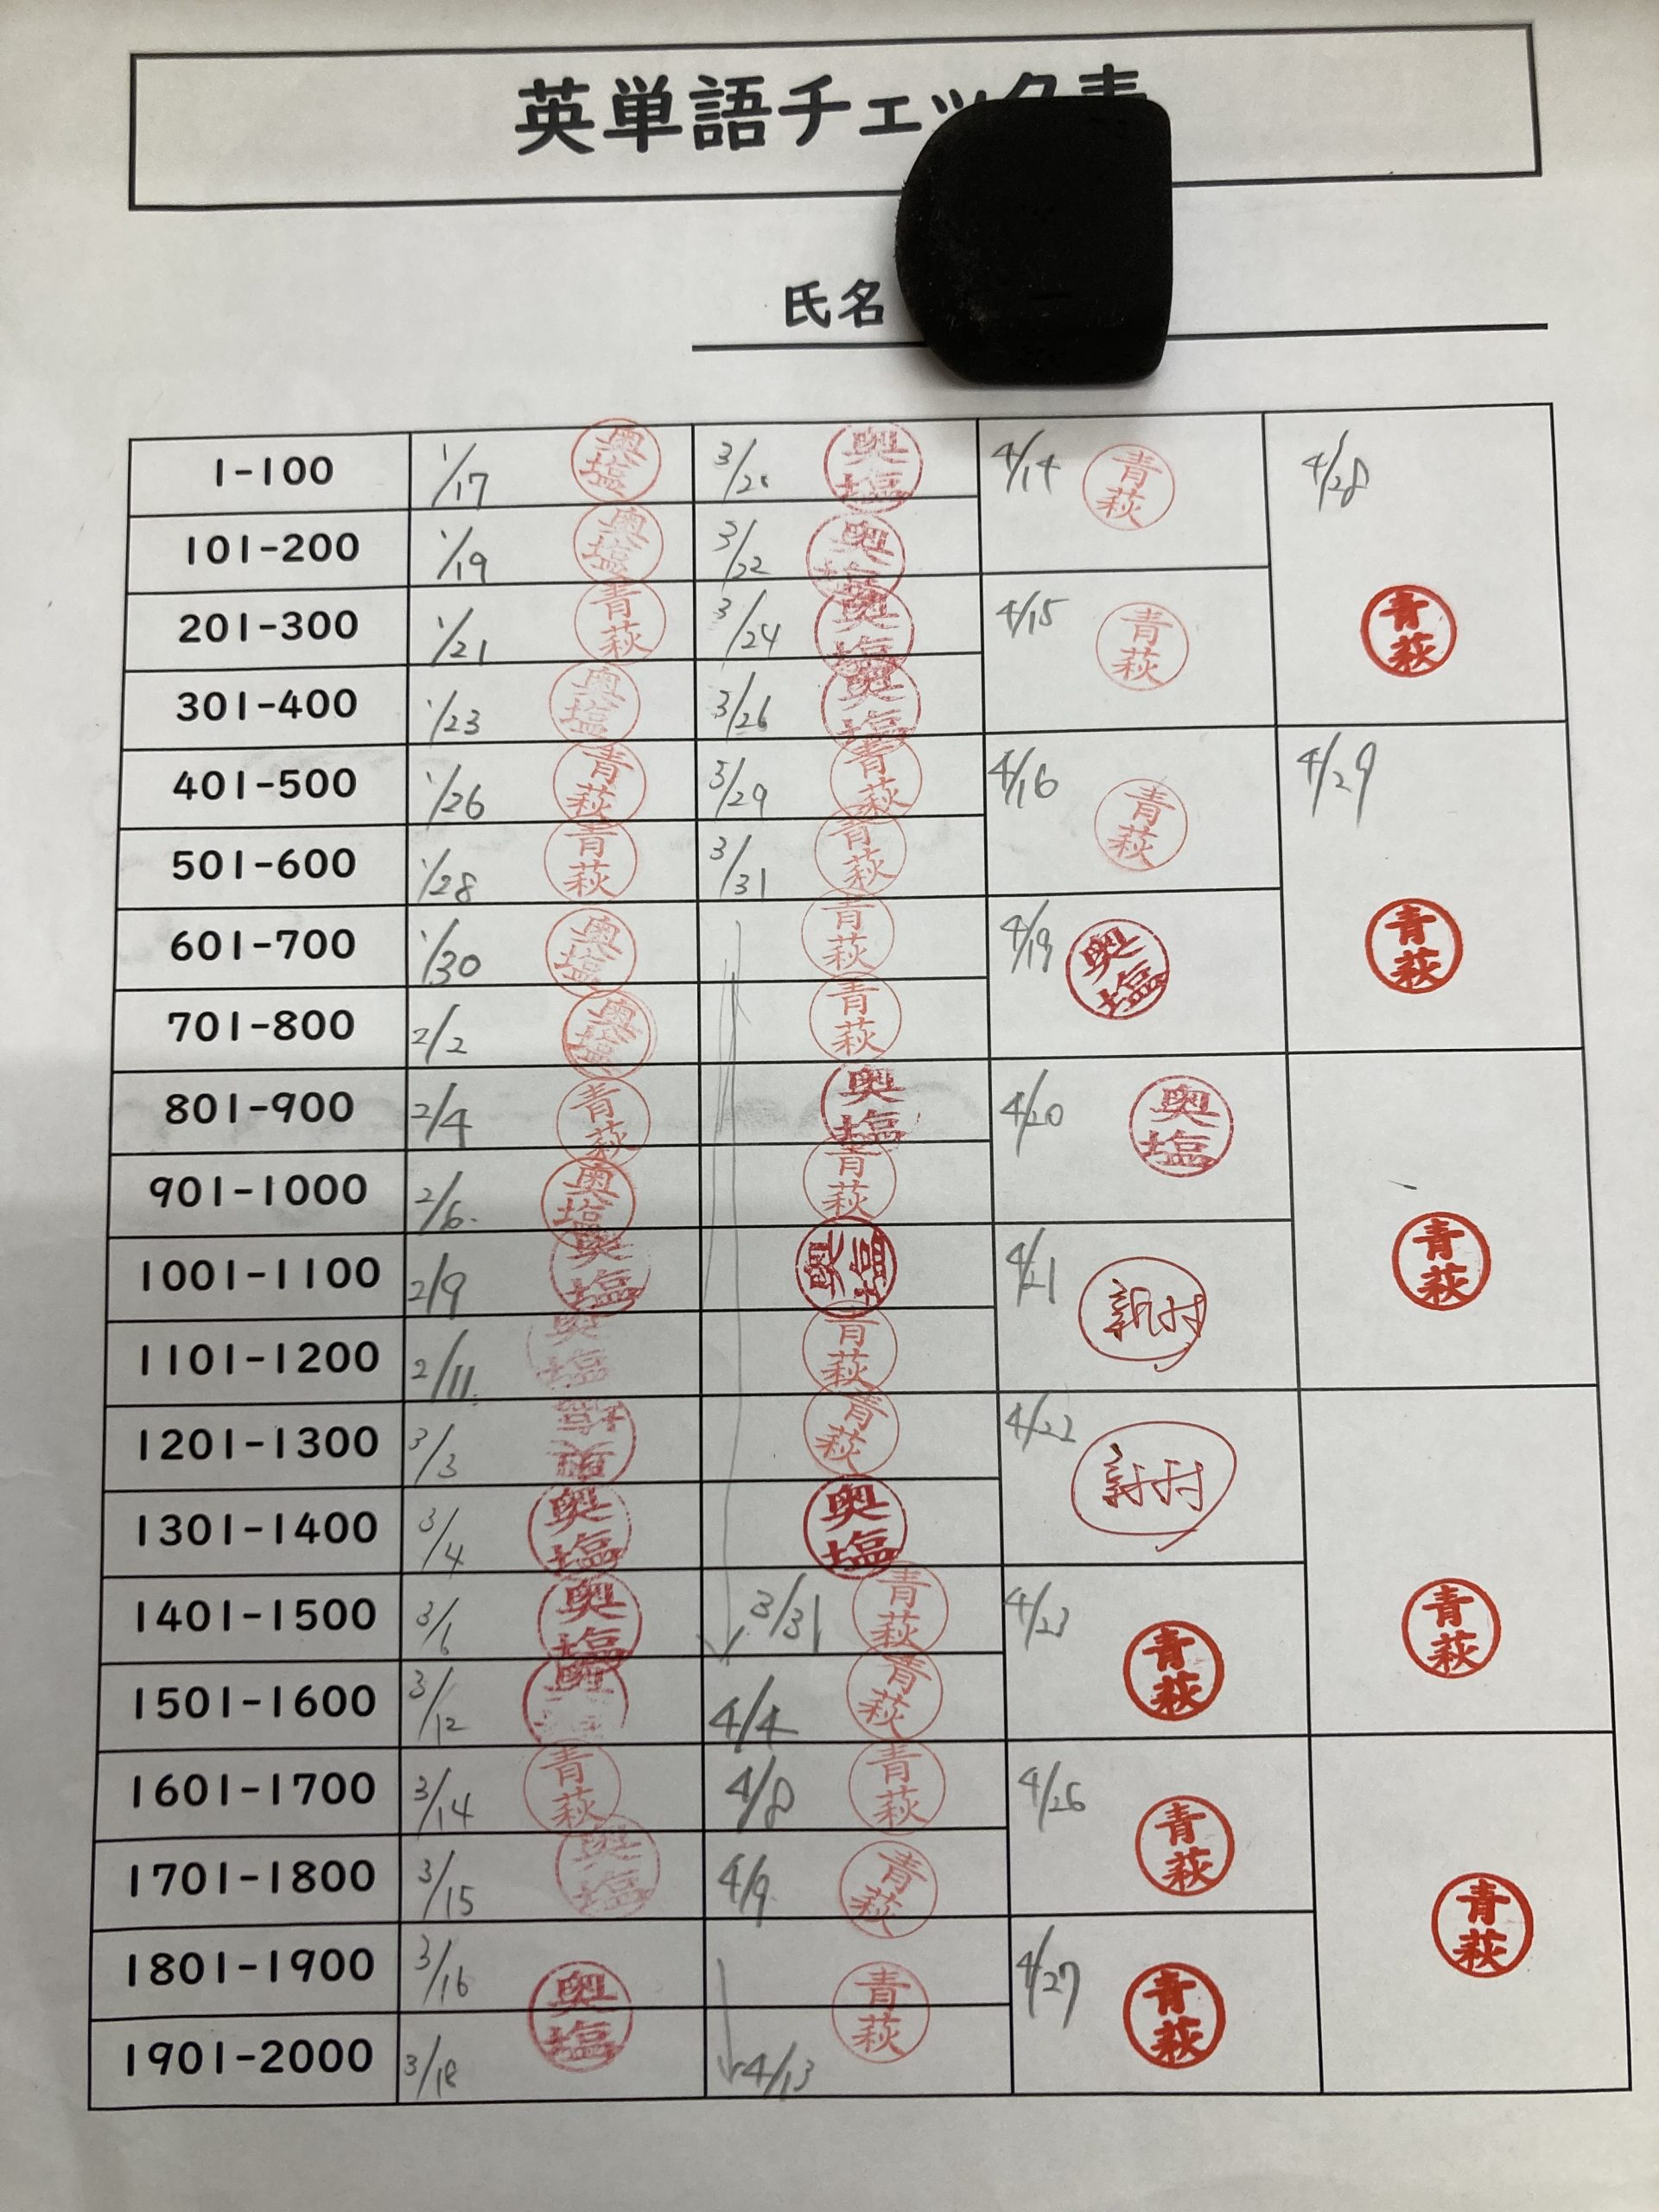 英単語チェック表
氏名
1-100 1/17 奥塩 3/2 奥塩 4/14 青萩 4/28 青萩
101-200 1/19 奥塩 3/22 奥塩
201-300 1/21 青萩 3/24 奥塩 4/15 青萩
301-400 1/23 奥塩 3/26 奥塩
401-500 1/26 青萩 3/29 青萩 4/16 青萩 4/29 青萩
501-600 1/28 青萩 3/31 青萩
601-700 1/30 奥塩 青萩 4/19 奥塩
701-800 2/2 奥塩 青萩
801-900 2/4 青萩 奥塩 4/20 奥塩 青萩
901-1000 2/6 奥塩 青萩
1001-1100 2/9 奥塩 奥塩 4/21 新村
1101-1200 2/11 奥塩 青萩
1201-1300 3/3 奥塩 青萩 4/22 新村 青萩
1301-1400 3/4 奥塩 奥塩
1401-1500 3/6 奥塩 3/31 青萩 4/23 青萩
1501-1600 3/12 奥 4/4 青萩
1601-1700 3/14 青萩 4/8 青萩 4/26 青萩 青萩
1701-1800 3/15 奥塩 4/9 青萩
1801-1900 3/16 奥塩 青萩 4/27 青萩
1901-2000 3/18 4/13